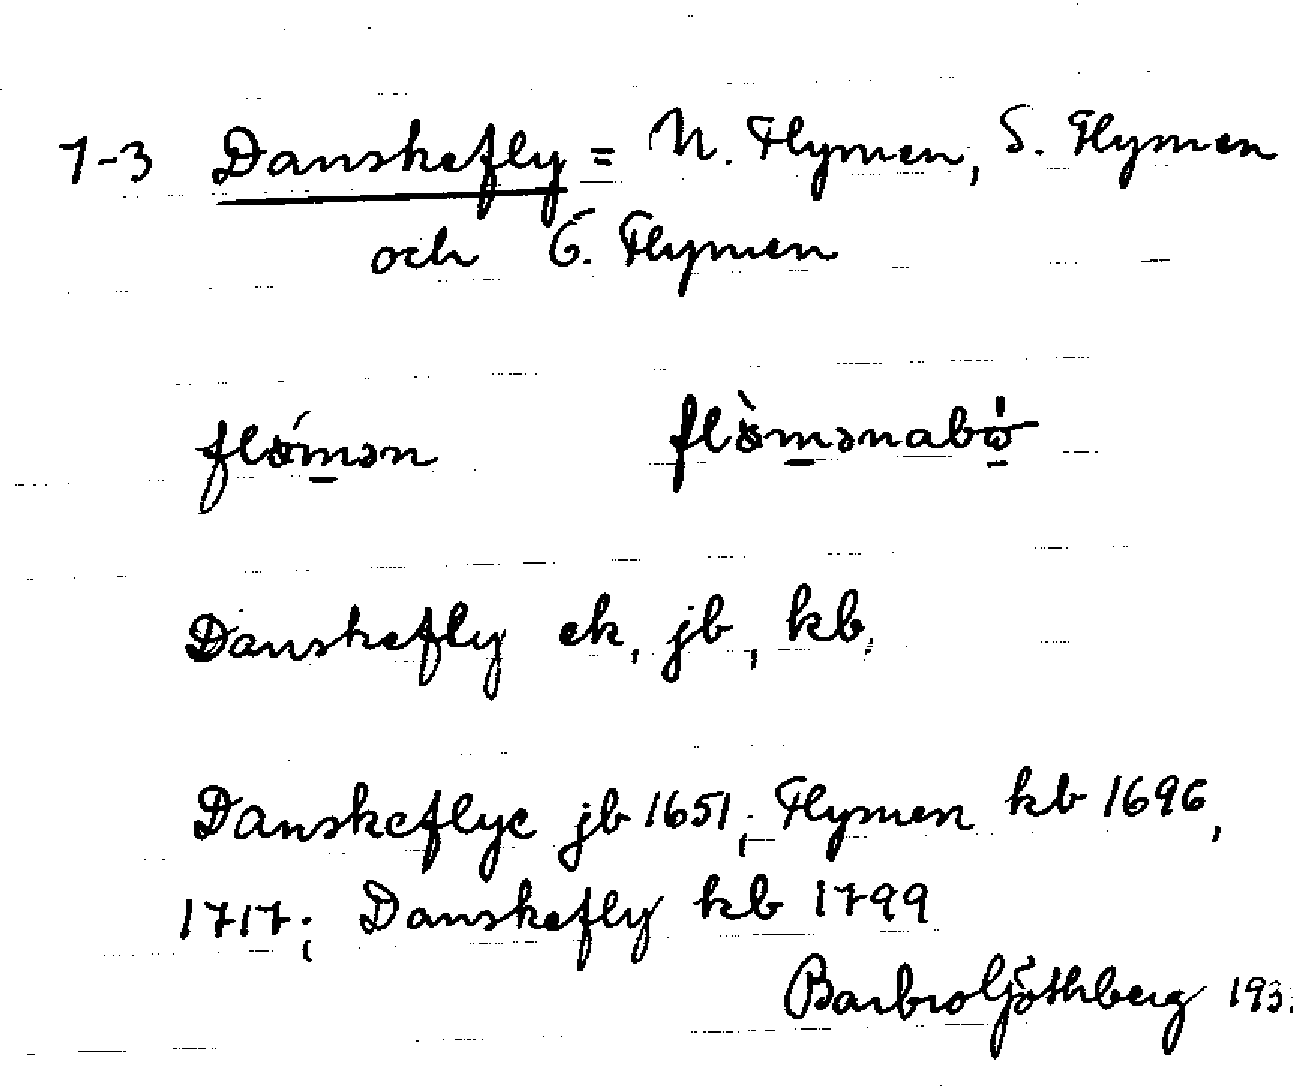 1-3 Danskefly = N. Flymen, S. Flymen
och G. Flymen
Danskefly ek, jb, kb.
Danskeflye jb 1651; Flymen kb 1696,
1717; Danskefly kb 1799
Barbro Göthberg 193